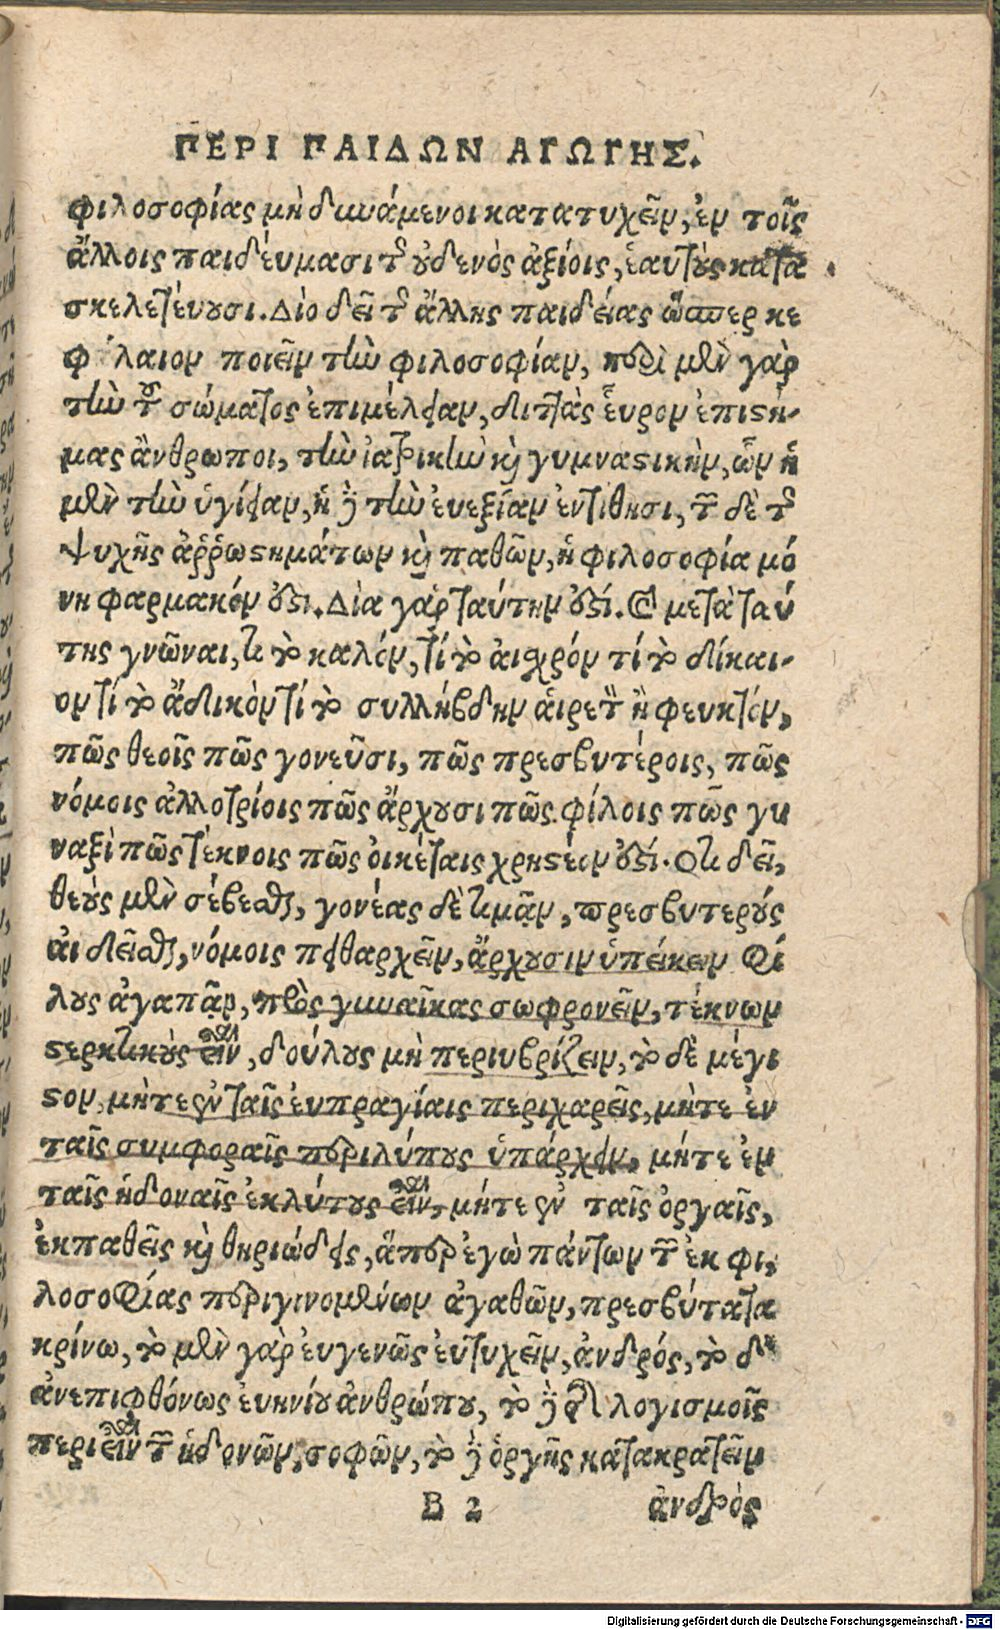 ΠΕΡΙ ΠΑΙΔΩΝ ΑΓΩΓΗΣ.
φιλοσοφίας μὴ δυνάμενοι κατατυχεῖν, ἐν τοῖς
ἄλλοις παιδέυμασι τοῦ οὐδενὸς ἀξίοις, ἑαυτοὺς κατα
σκελετέυουσι. Διὸ δεῖ τῆς ἄλλης παιδείας ὥσπερ κε
φάλαιον ποιεῖν τὴν φιλοσοφίαν, περὶ μὲν γὰρ
τὴν τοῦ σώματος ἐπιμέλειαν, διττὰς εὗρον ἐπιστή-
μας ἄνθρωποι, τὴν ἰατρικὴν καὶ γυμναστικὴν, ὧν ἡ
μὲν τὴν ὑγίειαν, ἡ δὲ τὴν ἐυεξίαν ἐντίθησι, τῶν δὲ τῆς
ψυχῆς ἀῤῥωστημάτων καὶ παθῶν, ἡ φιλοσοφία μό
νη φαρμακόν ἐστι. Δία γάρ ταύτην ἐστί. καὶ μετὰ ταύ
της γνῶναι, τι τὸ καλόν, τί τὸ ἀισχρόν τί τὸ δίκαι-
ον τί τὸ ἄδικὸν τί τὸ συλλήβδην ἁιρετὸν ἢ φευκτόν,
πῶς θεοῖς πῶς γονεῦσι, πῶς πρεσβυτέροις, πῶς
νόμοις ἀλλοτρίοις πῶς ἄρχουσι πῶς φίλοις πῶς γυ
ναξὶ πῶς τέκνοις πῶς ὀικέταις χρηστέον ἐστί. Οτι δεῖ,
θεοὺς μὲν σέβεσθαι, γονέας δὲ τιμᾷν, πρεσβυτερούς
ἀιδεῖσθαι, νόμοις πειθαρχεῖν, ἄρχουσιν ὑπείκειν φί
λους ἀγαπᾷν, πρὸς γυναῖκας σωφρονεῖν, τέκνων
στερκτικοὺς εἶναι, δούλους μὴ περιυβρίζειν, τὸ δὲ μέγι
στον, μήτε ἐν ταῖς ἐυπραγίαις περιχαρεῖς, μὴτε ἐν
ταῖς συμφοραῖς περιλύπους ὑπάρχειν, μήτε ἐν
ταῖς ἡδοναῖς ἐκλύτους εἶναι, μήτε ἐν ταῖς ὀργαῖς,
ἐκπαθεῖς καὶ θηριώδεις, ἅπερ ἐγὼ πάντων τῶν ἐκ φι,
λοσοφίας περιγινομένων ἀγαθῶν, πρεσβύτατα
κρίνω, τὸ μὲν γὰρ ἐυγενῶς ἐυτυχεῖν, ἀνδρός, τὸ δ'
ἀνεπιφθόνως ἐυηνίου ἀνθρώπου, τὸ δὲ τοῖς λογισμοῖς
περιεῖναι τῶν ἡδονῶν, σοφῶν, τὸ δὲ ὀργῆς κατακρατεῖν
B 2 ἀνδρὸς
Digitalisierung gefördert durch die Deutsche Forschungsgemeinschaft - DFG